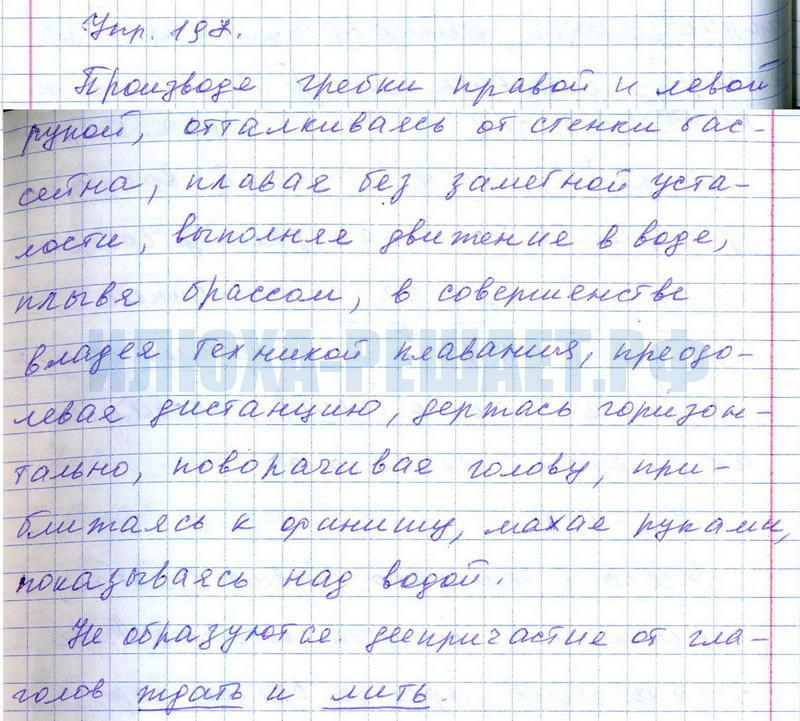 Упр. 197.
Производя гребки правой и левой
рукой, отталкиваясь от стенки бас-
сейна, плавая без заметной уста-
лости, выполняя движение в воде,
плывя брассом, в совершенстве
владея техникой плавания, преодо-
ИЛЮХА-РЕШАЕТ.РФ
левая дистанцию, держась горизон-
тально, поворачивая голову, при-
ближаясь к финишу, махая руками,
показываясь над водой.
Не образуются деепричастие от гла-
голов ждать и лить.